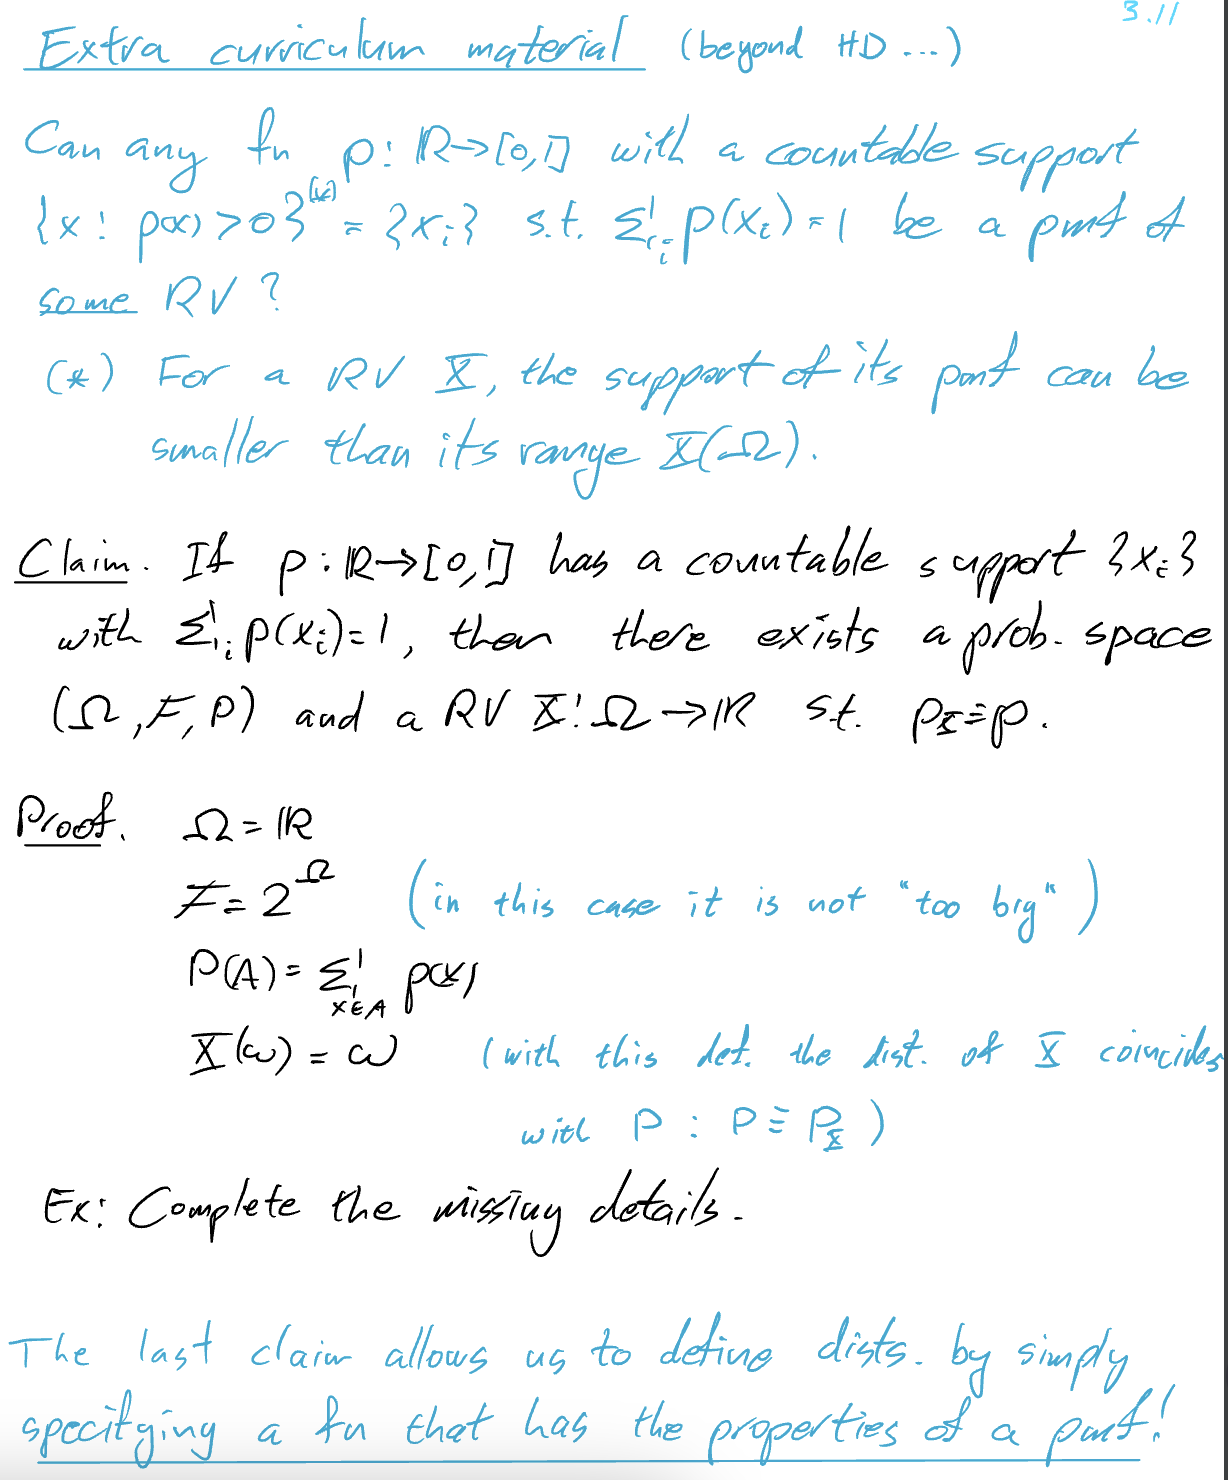 3.11
Extra curriculum material (beyond HD ...)
Can any fn p: ℝ→[0,1] with a countable support
{x: p(x)>0}^(*) = {xᵢ} s.t. Σᵢ p(xᵢ)=1 be a pmf of
some RV?
(*) For a RV X, the support of its pmf can be
smaller than its range X(Ω).
Claim. If p: ℝ→[0,1] has a countable support {xᵢ}
with Σᵢ p(xᵢ)=1, then there exists a prob. space
(Ω, F, P) and a RV X: Ω→ℝ s.t. p_X ≡ p.
Proof. Ω = ℝ
F = 2^Ω (in this case it is not "too big")
P(A) = Σ_{x∈A} p(x)
X(ω) = ω (with this def. the dist. of X coincides
with P : P ≡ P_X )
Ex: Complete the missing details.
The last claim allows us to define dists. by simply
specifying a fn that has the properties of a pmf!